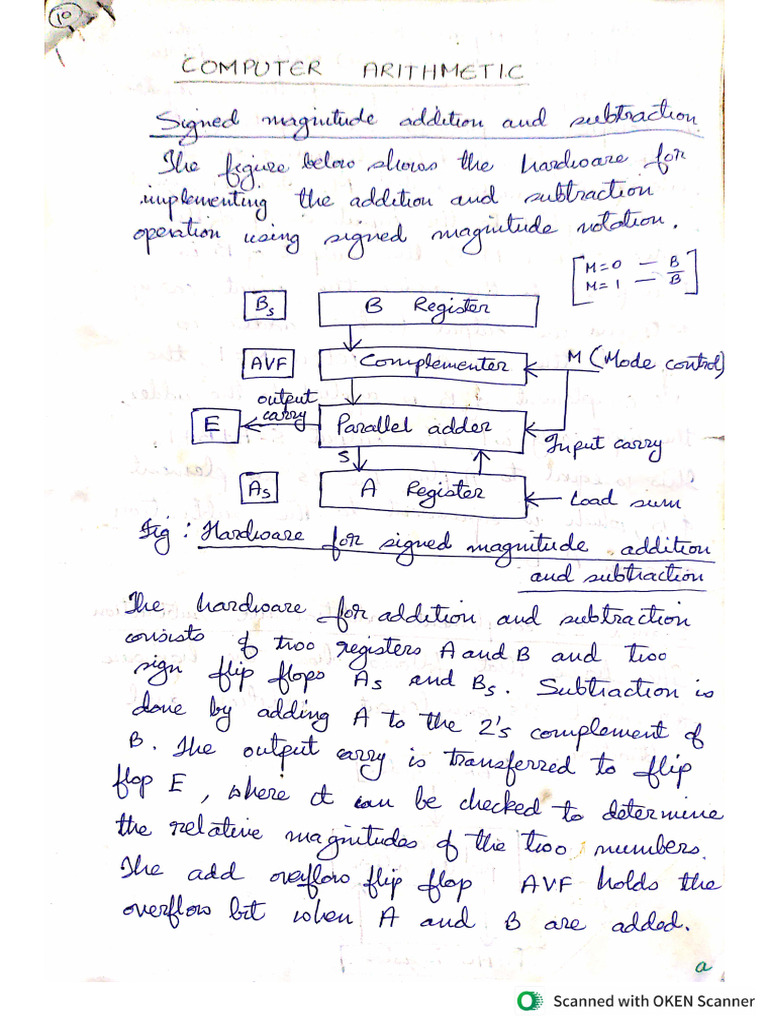 10
COMPUTER ARITHMETIC
Signed magnitude addition and subtraction
The figure below shows the hardware for
implementing the addition and subtraction
operation using signed magnitude notation.
[M=0 — B
M=1 — B̅]
Bs
B Register
AVF
Complementer
M (Mode control)
output
carry
E
Parallel adder
Input carry
S
As
A Register
Load sum
Fig : Hardware for signed magnitude addition
and subtraction
The hardware for addition and subtraction
consists of two registers A and B and two
sign flip flops As and Bs. Subtraction is
done by adding A to the 2's complement of
B. The output carry is transferred to flip
flop E, where it can be checked to determine
the relative magnitudes of the two numbers.
The add overflow flip flop AVF holds the
overflow bit when A and B are added.
a
Scanned with OKEN Scanner